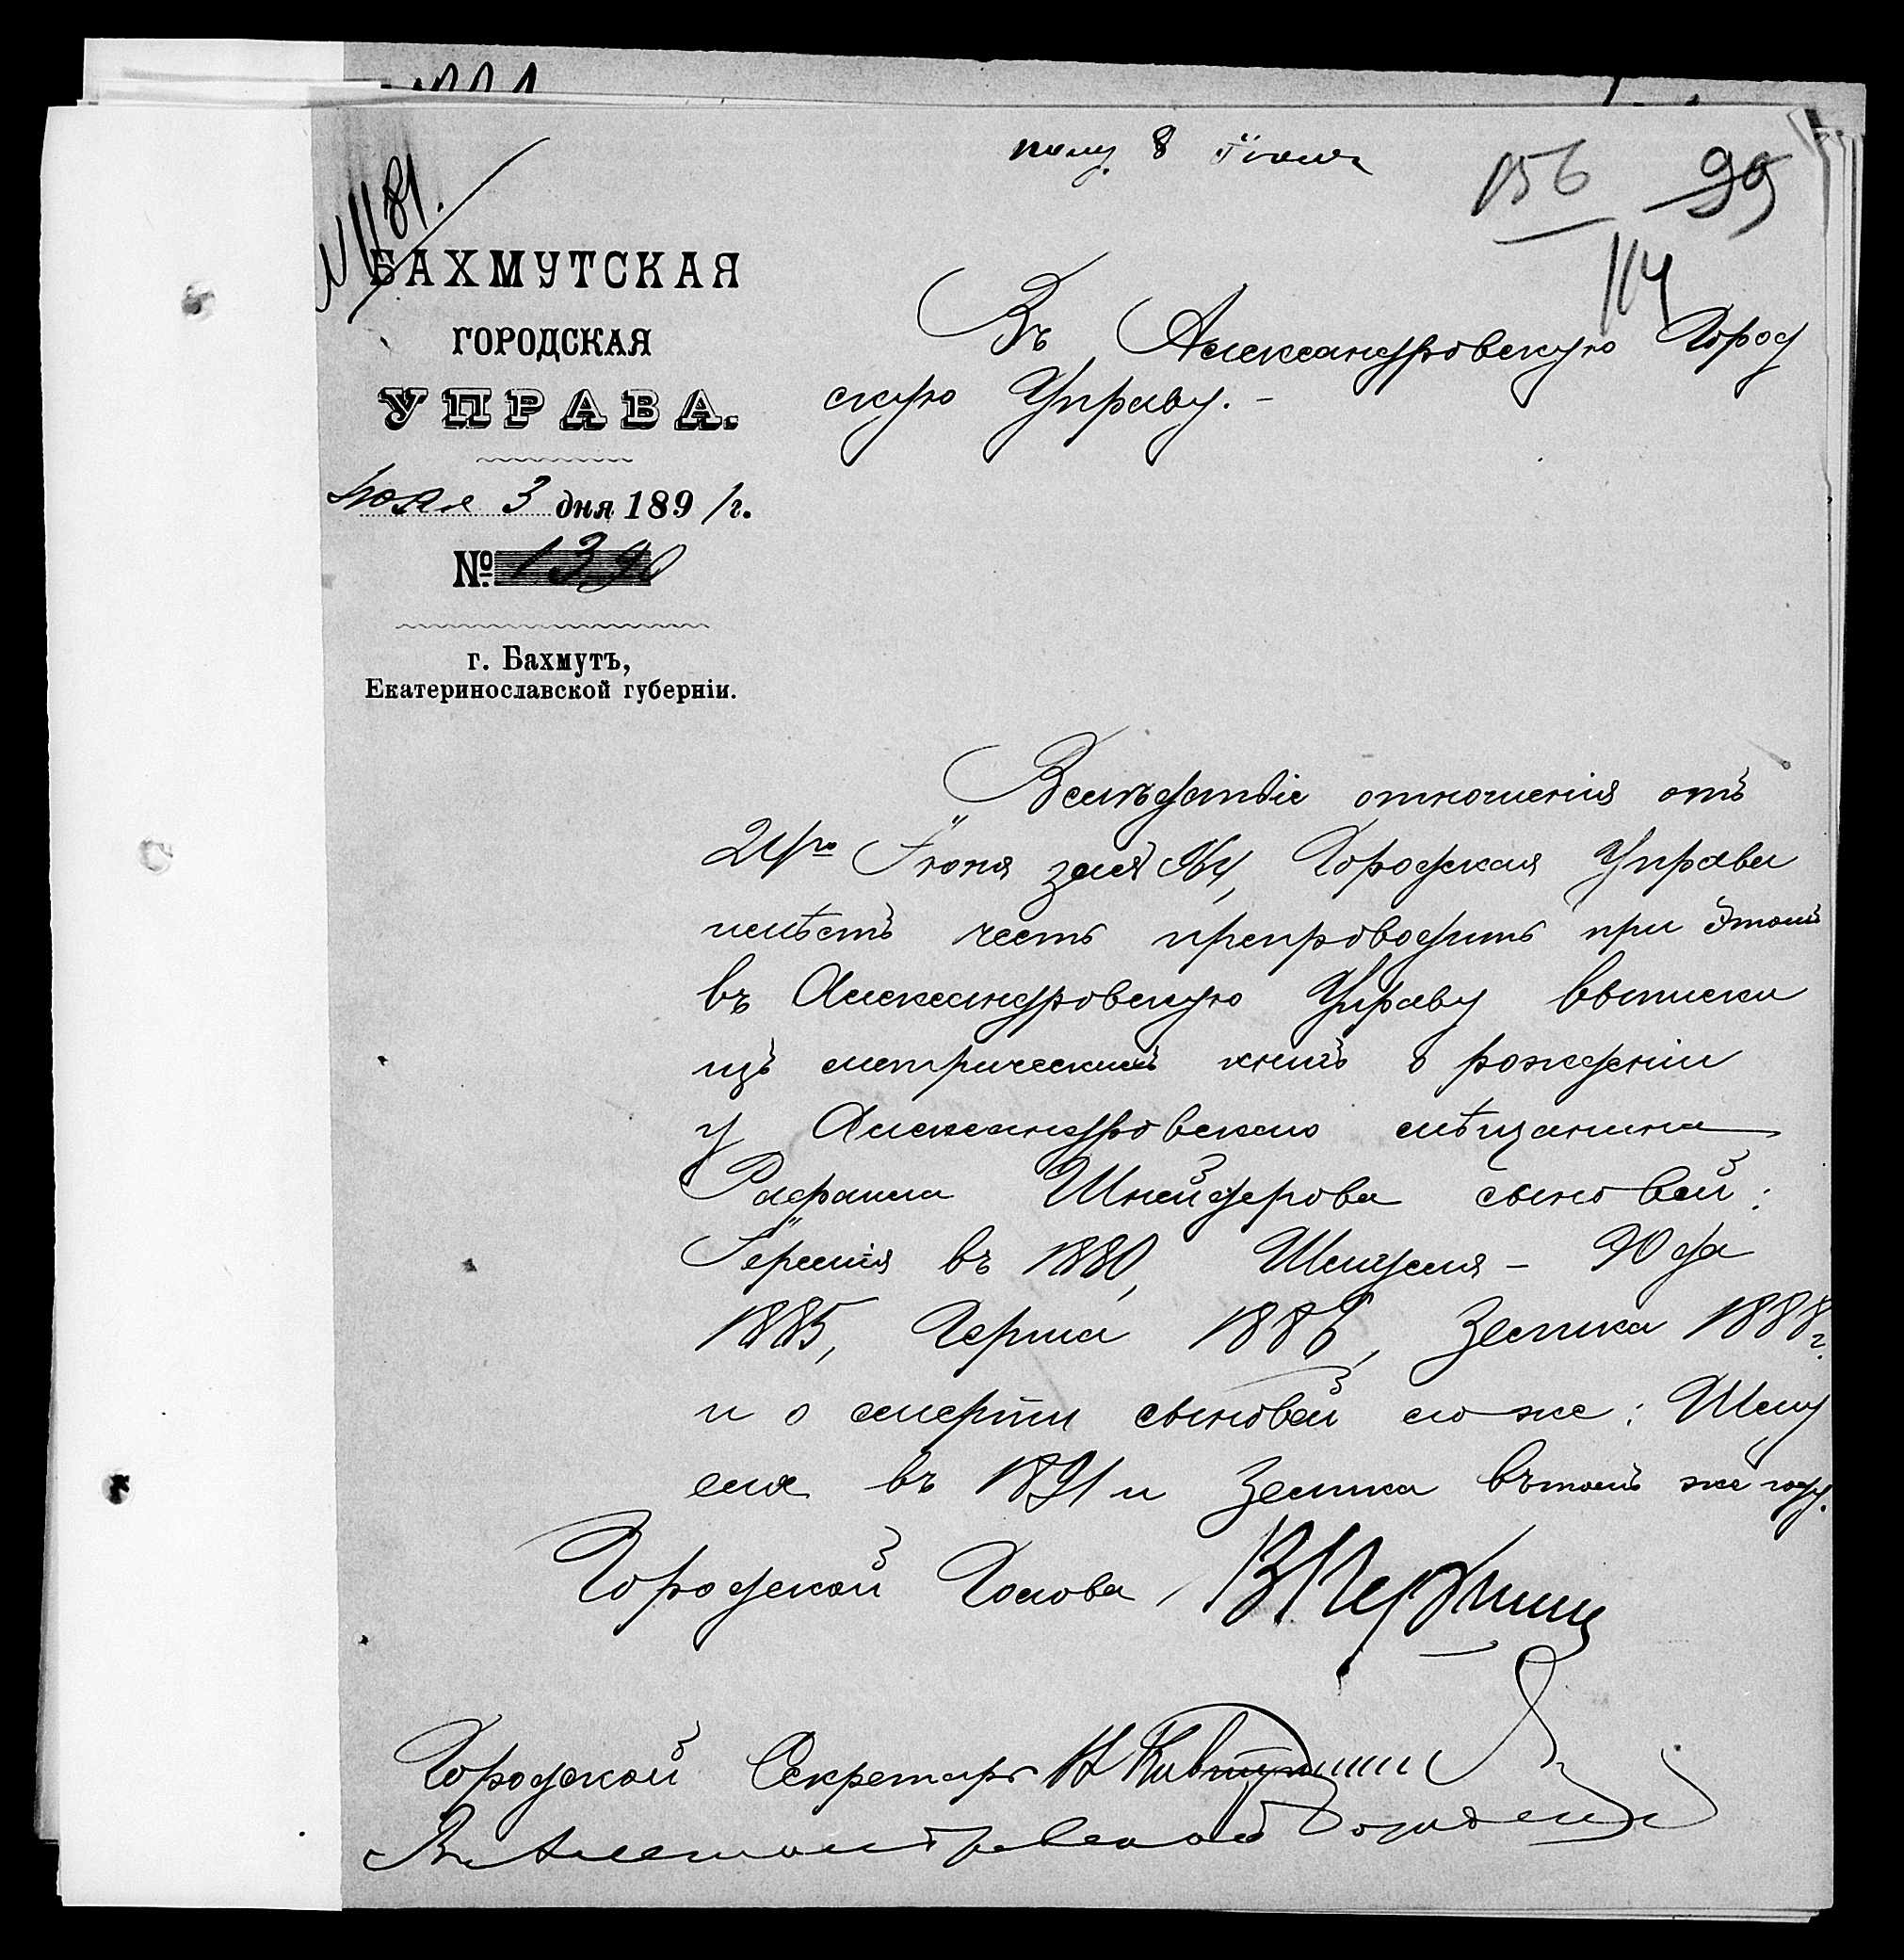 полу. 8 Іюля
156 99
114
№ 1181.
БАХМУТСКАЯ
ГОРОДСКАЯ
УПРАВА.
Іюля 3 дня 1891 г.
№ 1390
г. Бахмутъ,
Екатеринославской губерніи.
Въ Александровскую Город
скую Управу. -
Вслѣдствіе отношенія отъ
21го Іюня за № 964, Городская Управа
имѣетъ честь препроводить при этомъ
въ Александровскую Управу выписки
изъ метрическихъ книгъ о рожденіи
у Александровскаго мѣщанина
Рафаила Шнейдерова сыновей:
Іеремія въ 1880, Шмуеля - Юда
1885, Герша 1886, Зелика 1888 г.
и о смерти сыновей его же: Шму
еля въ 1891 и Зелика въ томъ же году.
Городской Голова
Городской Секретарь